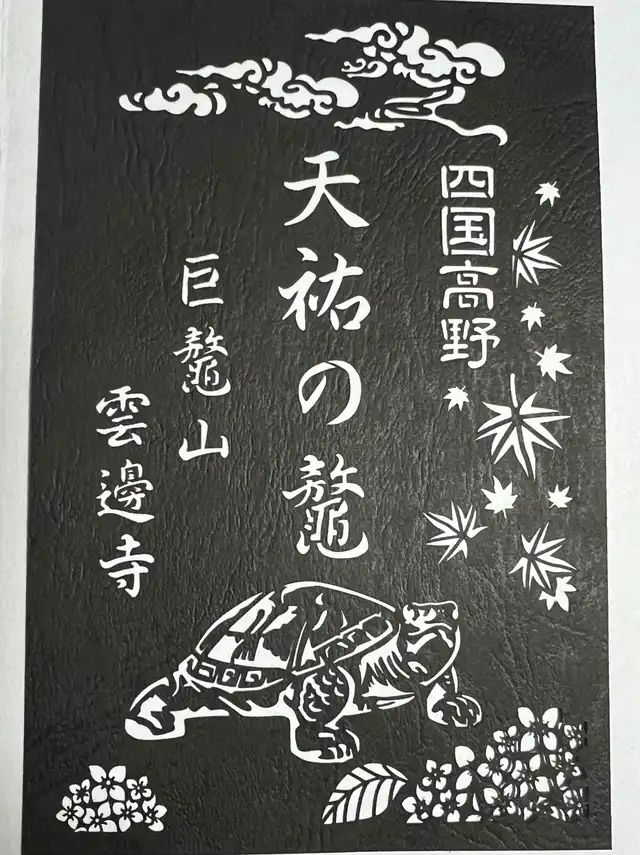 四国高野
天祐の鼇
巨鼇山
雲邊寺